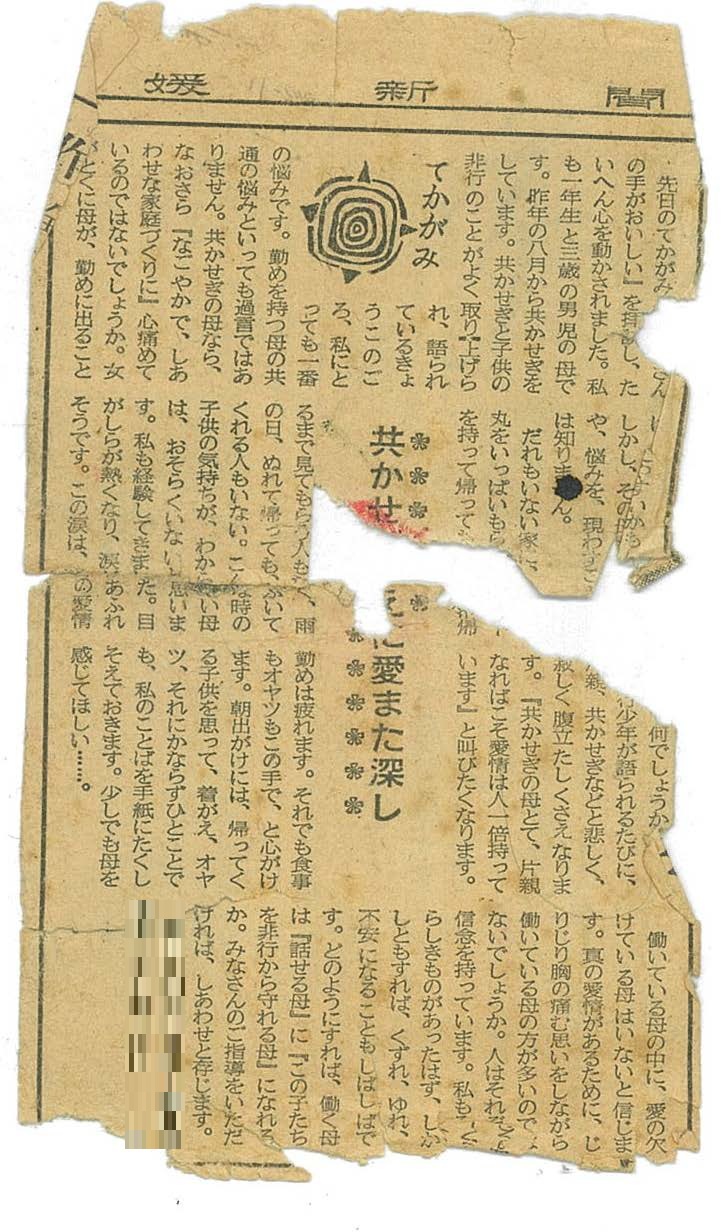 媛新聞
てかがみ
共かせ
に愛また深し
先日のてかがみ
さん
の手がおいしい』を拝 し、た
いへん心を動かされました。私
も一年生と三歳の男児の母で
す。昨年の八月から共かせぎを
しています。共かせぎと子供の
非行のことがよく取り上げら
れ、語られ
ているきょ
うこのご
ろ、私にと
っても一番
の悩みです。勤めを持つ母の共
通の悩みといっても過言ではあ
りません。共かせぎの母なら、
なおさら『なごやかで、しあ
わせな家庭づくりに』心痛めて
いるのではないでしょうか。女
がとくに母が、勤めに出ること
しかし、その
や、悩みを、現わ
は知りません。
だれもいない家
丸をいっぱいもら
を持って帰って
るまで見てもらう人も く、雨
の日、ぬれて帰っても、ふいて
くれる人もいない。こんな時の
子供の気持ちが、わからない母
は、おそらくいないと思いま
す。私も経験してきました。目
がしらが熱くなり、涙があふれ
そうです。この涙は、 の愛情
何でしょうか
少年が語られるたびに、
親、共かせぎなどと悲しく、
寂しく腹立たしくさえなりま
す。『共かせぎの母とて、片親
なればこそ愛情は人一倍持って
います』と叫びたくなります。
勤めは疲れます。それでも食事
もオヤツもこの手で、と心がけ
ます。朝出がけには、帰ってく
る子供を思って、着がえ、オヤ
ツ、それにかならずひとことで
も、私のことばを手紙にたくし
そえておきます。少しでも母を
感じてほしい……。
働いている母の中に、愛の欠
けている母はいないと信じま
す。真の愛情があるために、じ
りじり胸の痛む思いをしながら
働いている母の方が多いので
ないでしょうか。人はそれぞれ
信念を持っています。私も
らしきものがあったはず、しか
しともすれば、くずれ、ゆれ、
不安になることもしばしばで
す。どのようにすれば、働く母
は『話せる母』に『この子たち
を非行から守れる母』になれる
か。みなさんのご指導をいただ
ければ、しあわせと存じます。